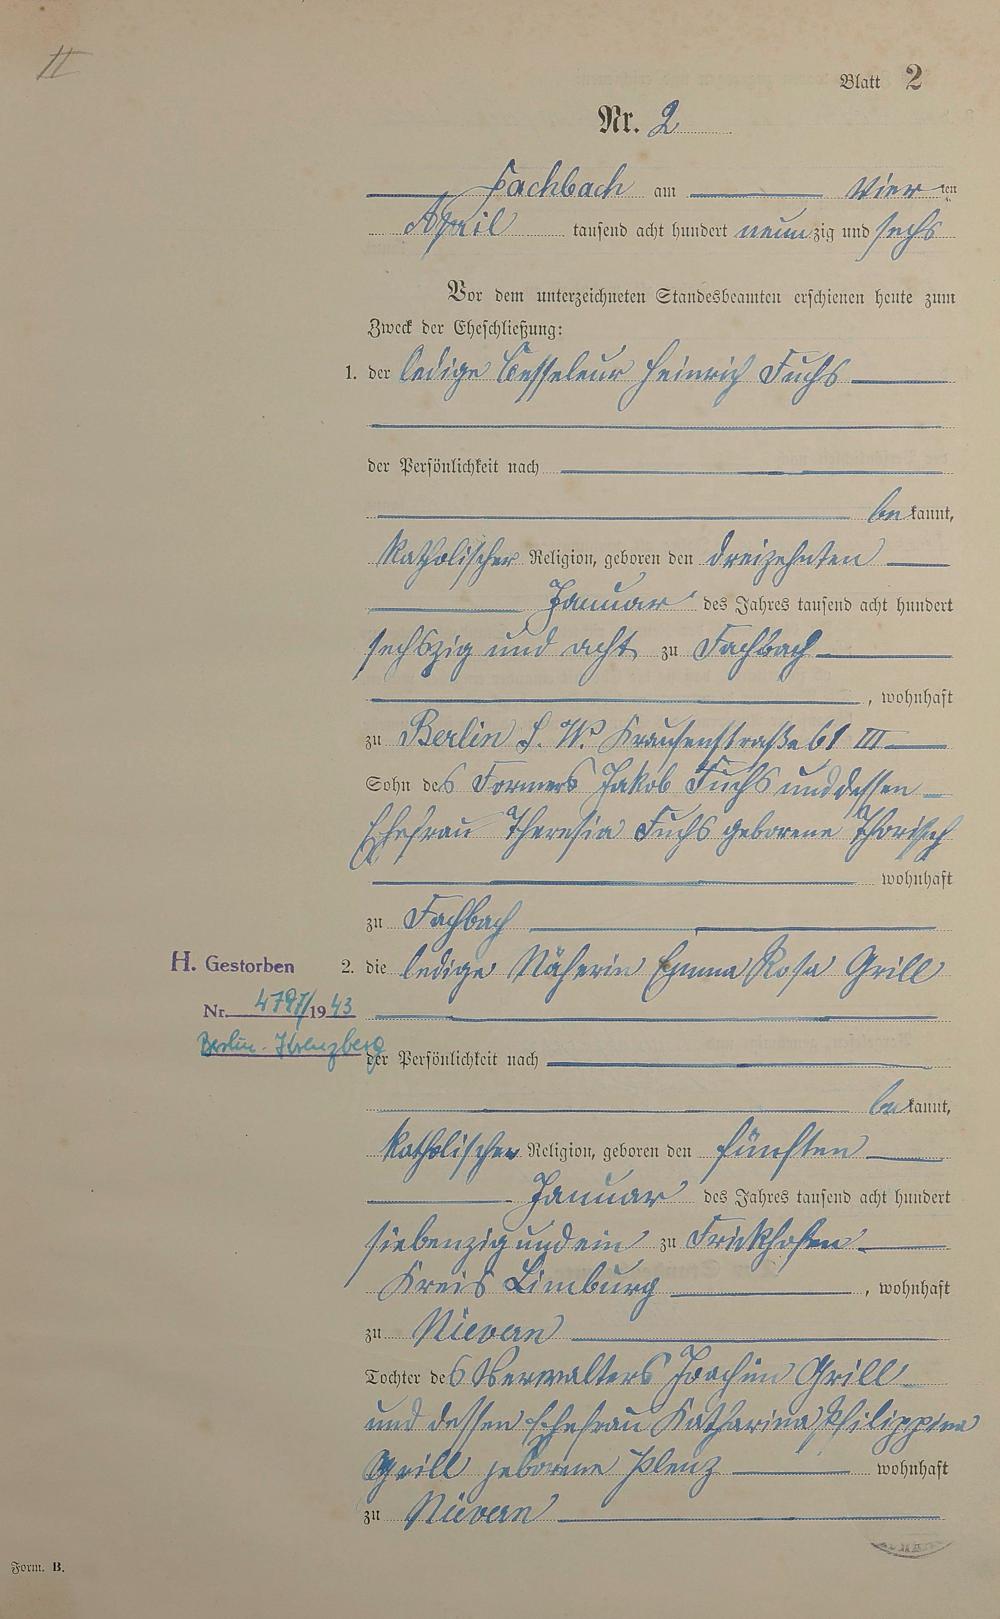 II
Blatt 2
Nr. 2
Fachbach am Vier ten
April tausend acht hundert neun zig und sechs
Vor dem unterzeichneten Standesbeamten erschienen heute zum
Zweck der Eheschließung:
1. der ledige Heinrich Fuchs
der Persönlichkeit nach
be kannt,
katholischer Religion, geboren den dreizehnten
Januar des Jahres tausend acht hundert
sechszig und acht zu Fachbach
, wohnhaft
zu Berlin S. W. Krausenstraße 61 III
Sohn des Formers Jakob Fuchs und dessen
Ehefrau Theresia Fuchs geborene
wohnhaft
zu Fachbach
H. Gestorben
Nr. 4797/1943
Berlin-Kreuzberg
2. die ledige Näherin Emma Rosa Grill
der Persönlichkeit nach
be kannt,
katholischer Religion, geboren den fünften
Januar des Jahres tausend acht hundert
siebenzig und ein zu Frickhofen
Kreis Limburg , wohnhaft
zu Nievern
Tochter des Verwalters Joachim Grill
und dessen Ehefrau Katharina Philippina
Grill geborene Plenz wohnhaft
zu Nievern
Form. B.